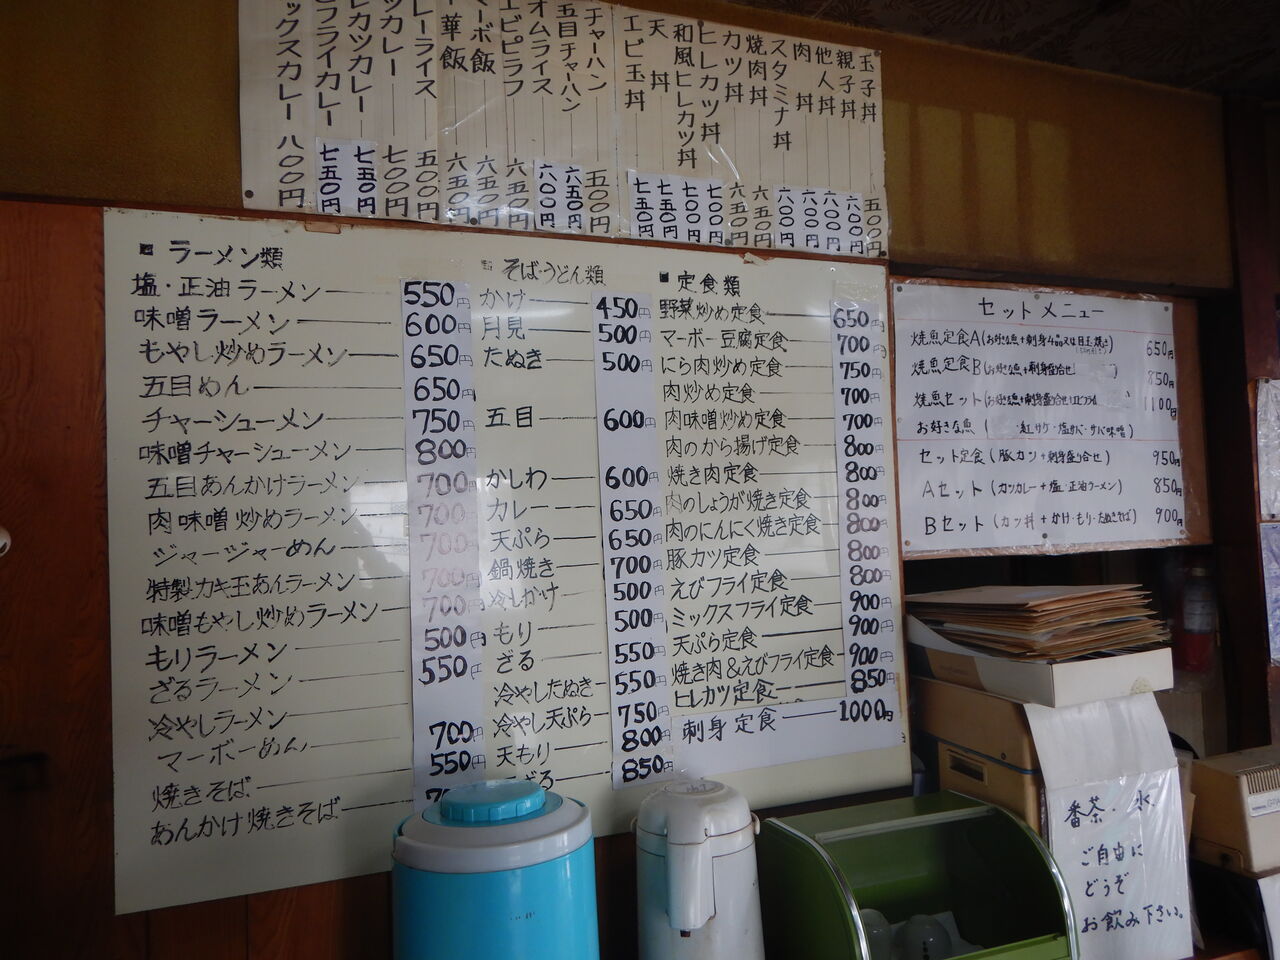 玉子丼 五〇〇円
親子丼 六〇〇円
他人丼 六〇〇円
肉丼 六〇〇円
スタミナ丼 六〇〇円
焼肉丼 六五〇円
カツ丼 六五〇円
ヒレカツ丼 七〇〇円
和風ヒレカツ丼 七〇〇円
天丼 七五〇円
エビ玉丼 七五〇円
チャーハン 五〇〇円
五目チャーハン 六五〇円
オムライス 六〇〇円
エビピラフ 六五〇円
マーボ飯 六五〇円
華飯 六五〇円
レーライス 五〇〇円
ツカレー 七〇〇円
レカツカレー 七五〇円
フライカレー 七五〇円
ックスカレー 八〇〇円
■ ラーメン類
塩・正油ラーメン 550円
味噌ラーメン 600円
もやし炒めラーメン 650円
五目めん 650円
チャーシューメン 750円
味噌チャーシューメン 800円
五目あんかけラーメン 700円
肉味噌炒めラーメン 700円
ジャージャーめん 700円
特製カキ玉あんラーメン 700円
味噌もやし炒めラーメン 700円
もりラーメン 500円
ざるラーメン 550円
冷やしラーメン
マーボーめん 700円
焼きそば 550円
あんかけ焼きそば
■ そば・うどん類
かけ 450円
月見 500円
たぬき 500円
五目 600円
かしわ 600円
カレー 650円
天ぷら 650円
鍋焼き 700円
冷しかけ 500円
もり 500円
ざる 550円
冷やしたぬき 550円
冷やし天ぷら 750円
天もり 800円
ざる 850円
■ 定食類
野菜炒め定食 650円
マーボー豆腐定食 700円
にら肉炒め定食 750円
肉炒め定食 700円
肉味噌炒め定食 700円
肉のから揚げ定食 800円
焼き肉定食 800円
肉のしょうが焼き定食 800円
肉のにんにく焼き定食 800円
豚カツ定食 800円
えびフライ定食 800円
ミックスフライ定食 900円
天ぷら定食 900円
焼き肉&えびフライ定食 900円
ヒレカツ定食 850円
刺身定食 1000円
セットメニュー
焼魚定食A(お好きな魚+刺身4品又は目玉焼き) 650円
焼魚定食B(お好きな魚+刺身盛合せ) 850円
焼魚セット(お好きな魚+刺身盛り合せ+エビフライ) 1100円
お好きな魚( 紅サケ・塩サバ・サバ味噌)
セット定食(豚カツ+刺身盛り合せ) 950円
Aセット(カツカレー+塩・正油ラーメン) 850円
Bセット(カツ丼+かけ・もり・たぬきそば) 900円
番茶・水
ご自由に
どうぞ
お飲み下さい。